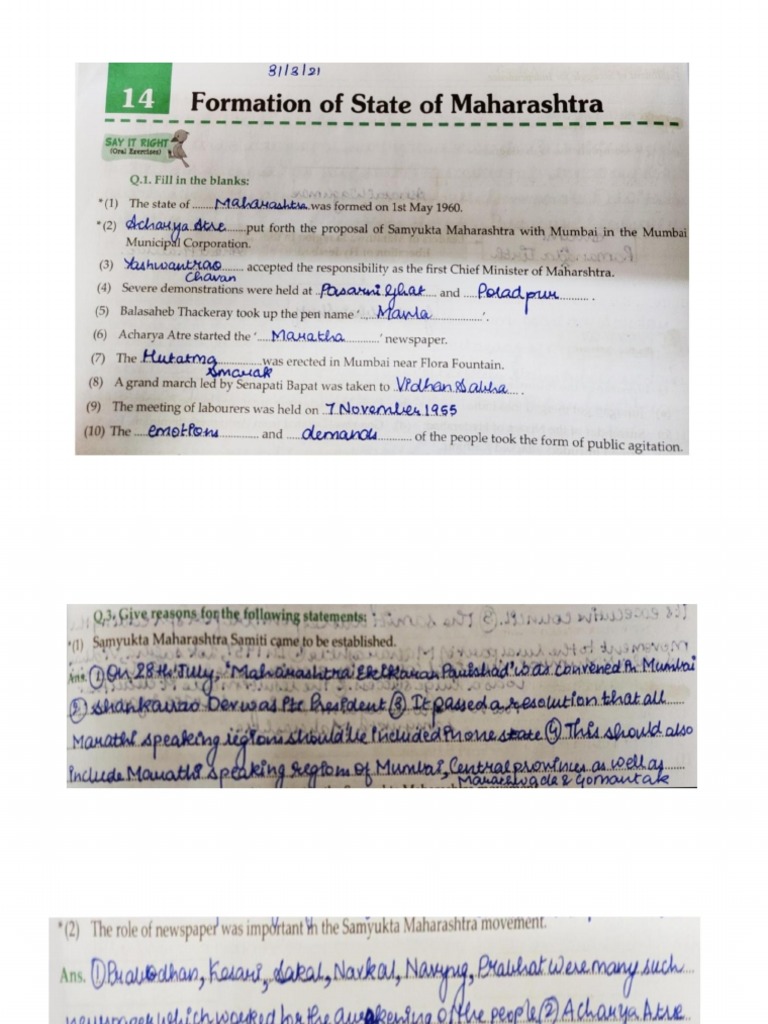 31/3/21
14 Formation of State of Maharashtra
SAY IT RIGHT
(Oral Exercises)
Q.1. Fill in the blanks:
*(1) The state of ........Maharashtra was formed on 1st May 1960.
*(2) Acharya Atre......put forth the proposal of Samyukta Maharashtra with Mumbai in the Mumbai
Municipal Corporation.
(3) Yashwantrao........ accepted the responsibility as the first Chief Minister of Maharshtra.
Chavan
(4) Severe demonstrations were held at ..Pasarni Ghat.... and ....Poladpur........... .
(5) Balasaheb Thackeray took up the pen name '.....Mavla..............'.
(6) Acharya Atre started the '....Maratha............' newspaper.
(7) The ..Hutatma.............was erected in Mumbai near Flora Fountain.
Smarak
(8) A grand march led by Senapati Bapat was taken to ..Vidhan Sabha.... .
(9) The meeting of labourers was held on 7 November 1955
(10) The ....emotions........... and ....demands.......... of the people took the form of public agitation.
Q.3. Give reasons for the following statements:
*(1) Samyukta Maharashtra Samiti came to be established.
Ans. ① On 28th July, 'Maharashtra Ekikaran Parishad' was convened in Mumbai
② Shankarrao Dev was its President ③ It passed a resolution that all
Marathi speaking regions should be included in one state ④ This should also
include Marathi speaking regions of Mumbai, Central provinces as well as
Marathwada & Gomantak
*(2) The role of newspaper was important in the Samyukta Maharashtra movement.
Ans. ① Prabodhan, Kesari, Sakal, Navkal, Navyug, Prabhat were many such
newspaper which worked for the awakening of the people ② Acharya Atre